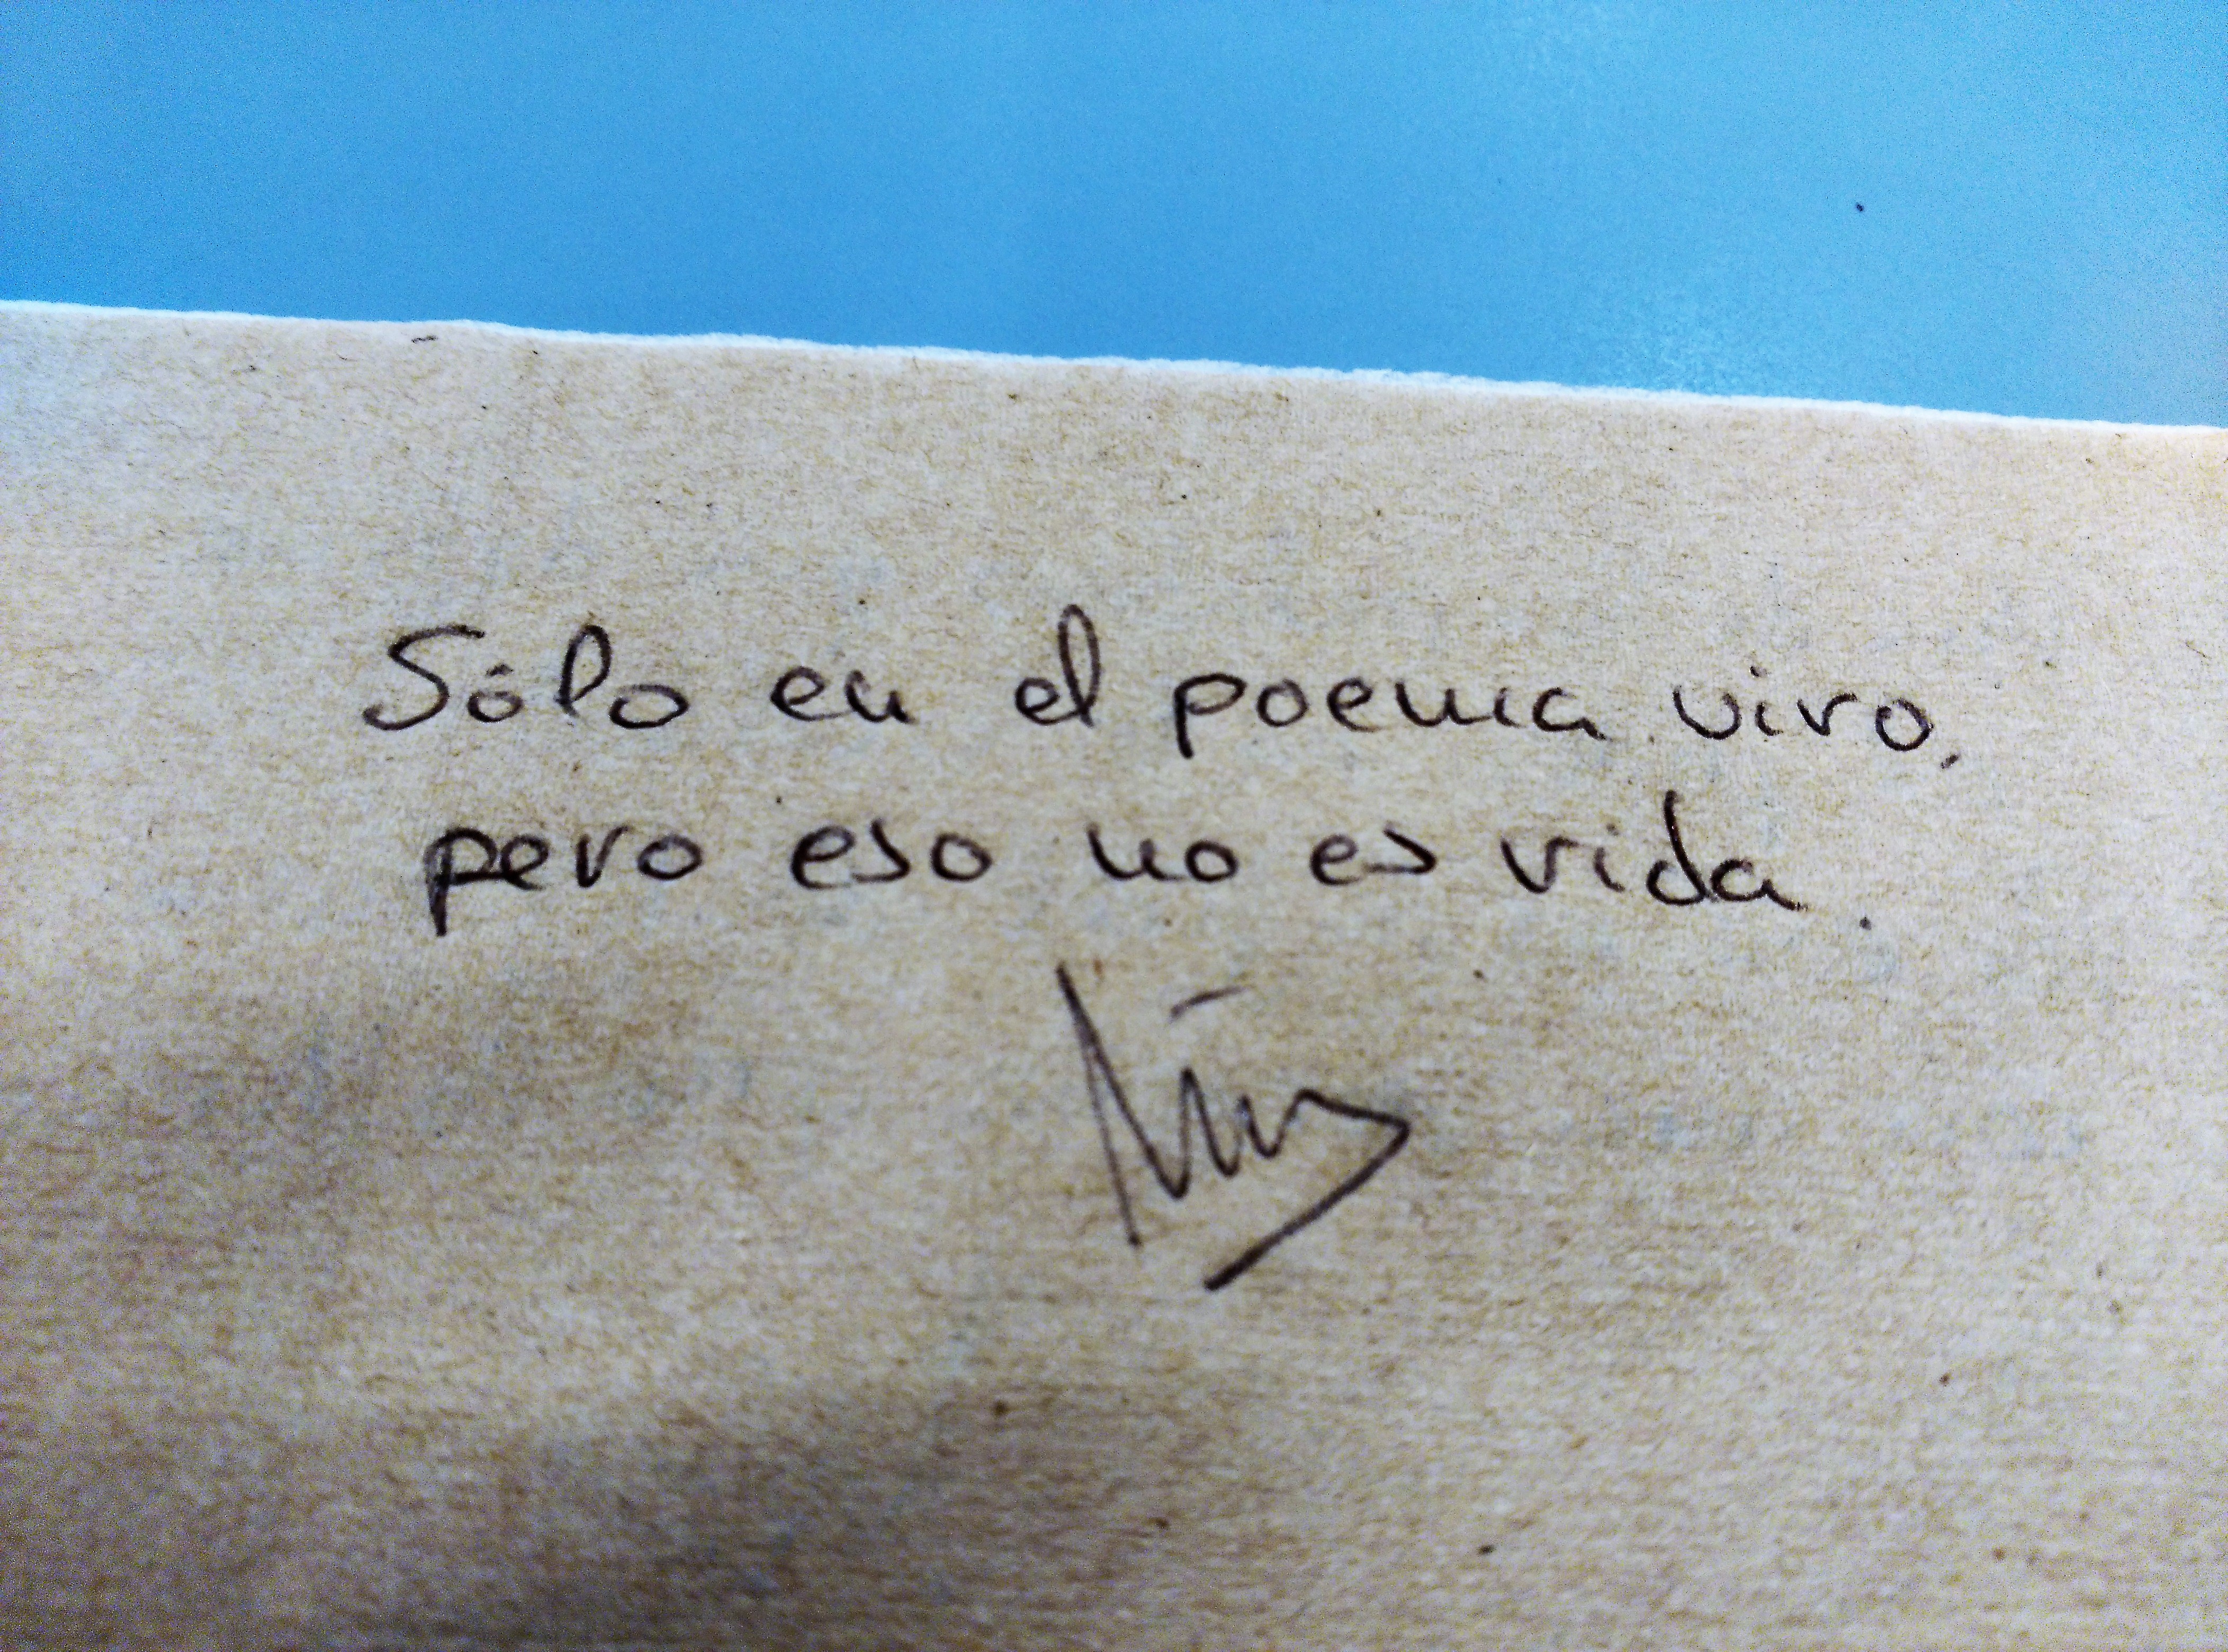 Sólo en el poema vivo,
pero eso no es vida.